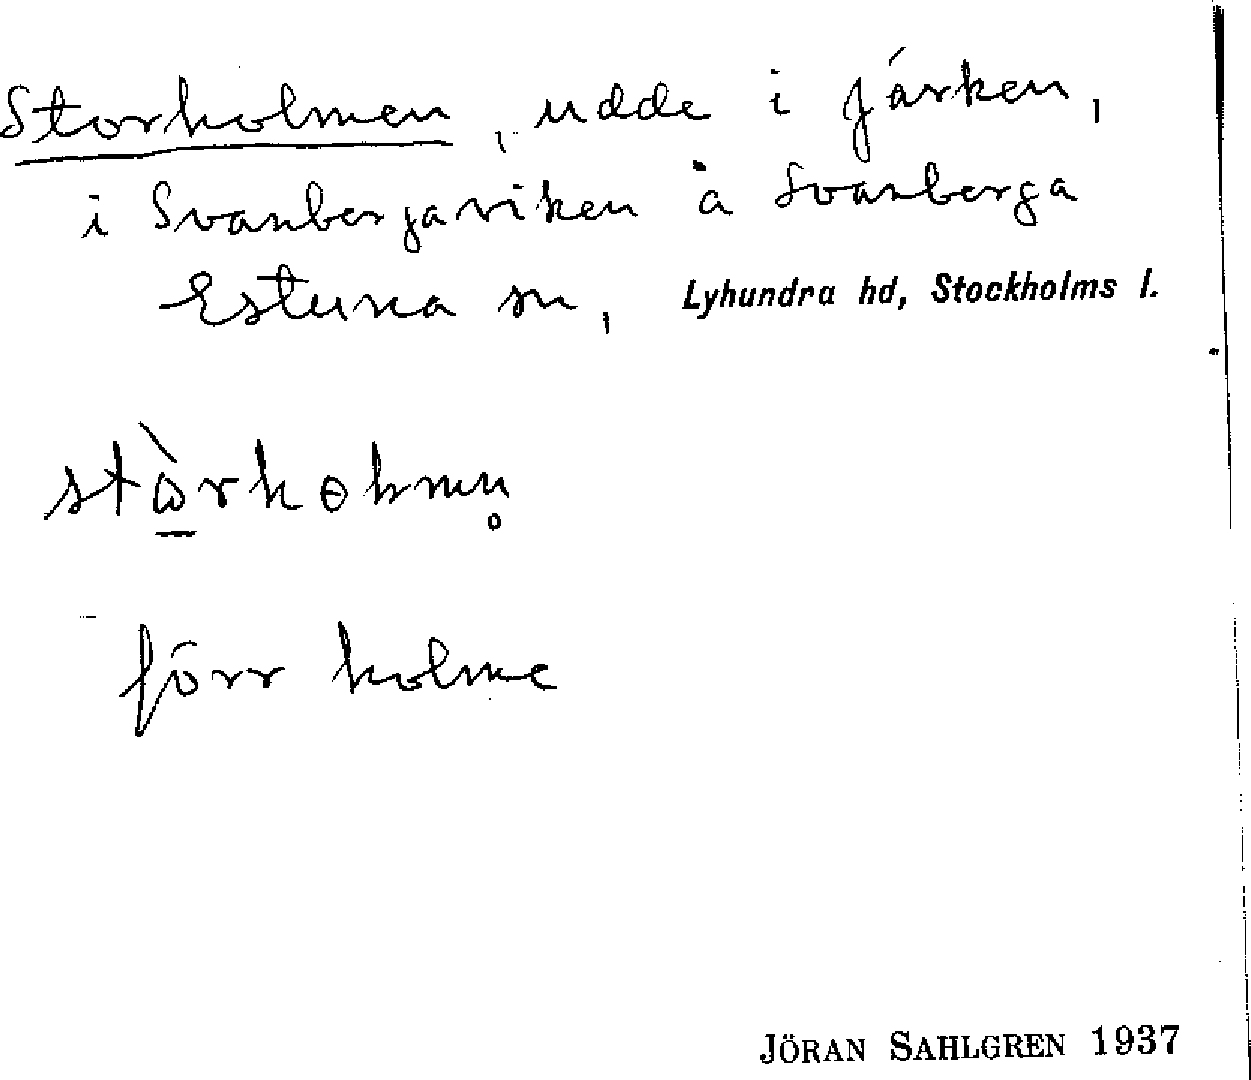 Storholmen, udde i Järken,
i Svanbergaviken å Svanberga
Estuna sn, Lyhundra hd, Stockholms l.
förr holme
JÖRAN SAHLGREN 1937